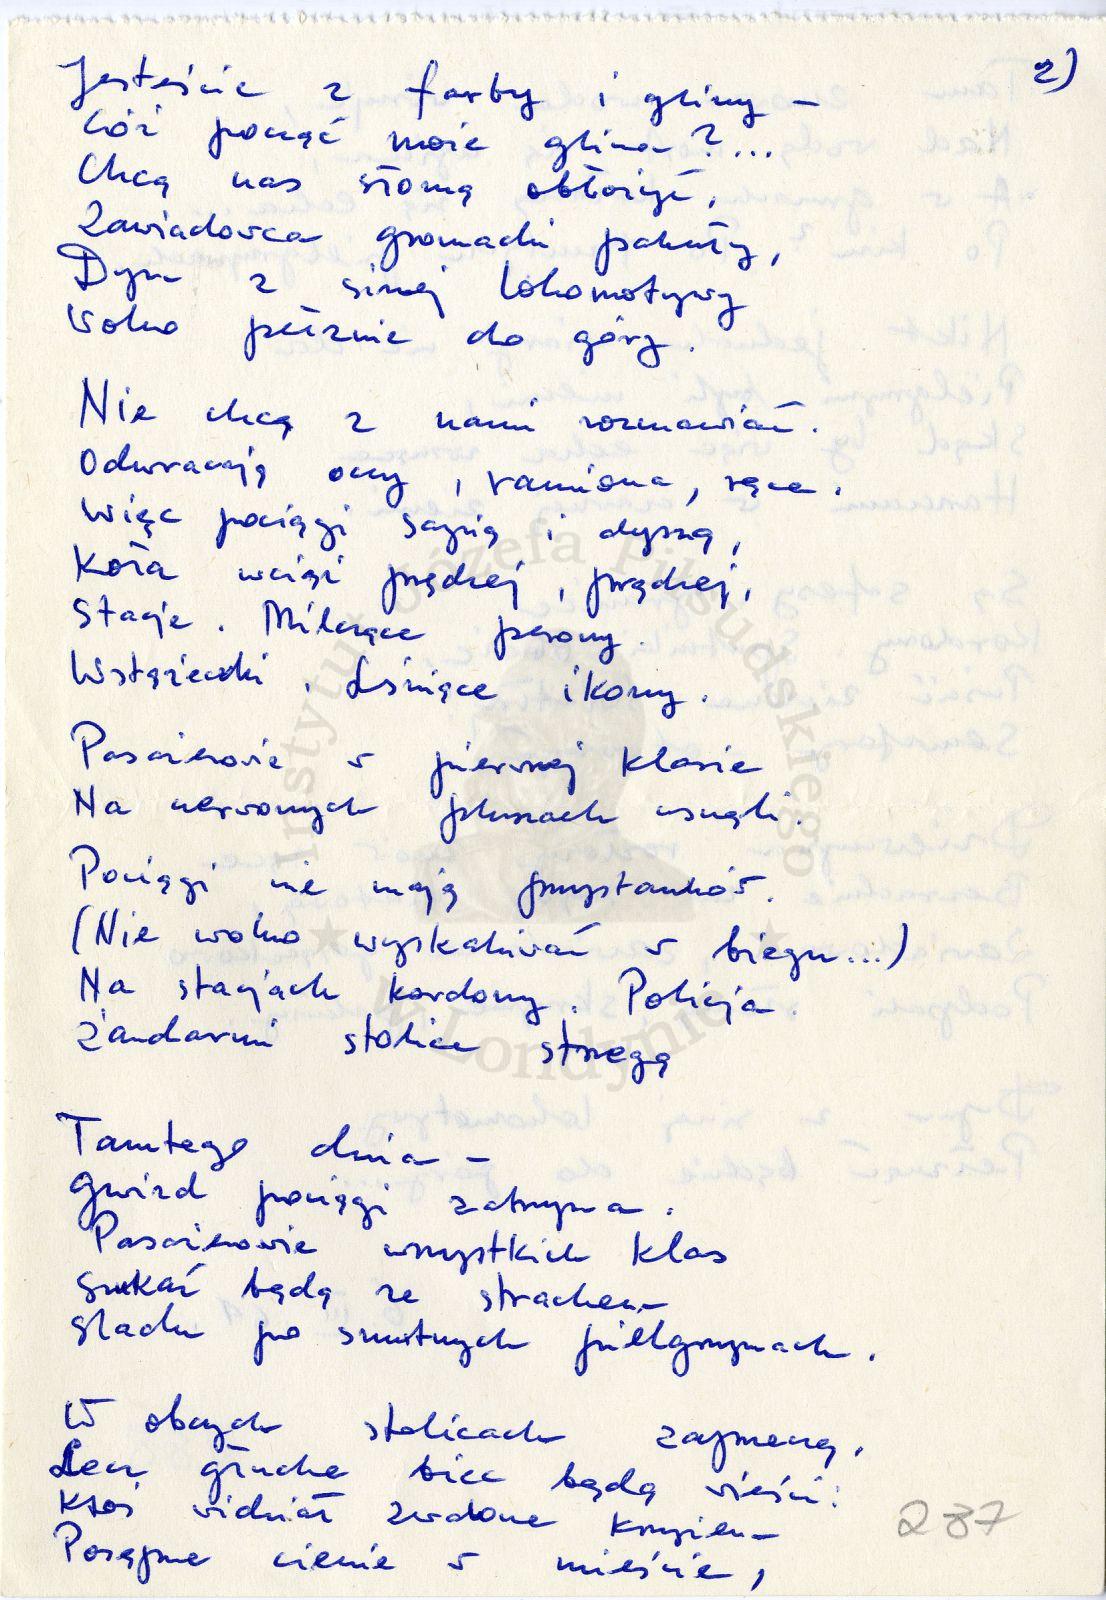 2)
Jesteście z farby i gliny –
Cóż począć może glina?...
Chcą nas słomą obłożyć,
Zawiadowca gromadzi pakuły,
Dym z sinej lokomotywy
Wolno pełznie do góry.
Nie chcą z nami rozmawiać.
Odwracają oczy, ramiona, ręce.
Więc pociągi sapią i dyszą,
Koła wciąż prędzej, prędzej,
Stacje. Milczące perony.
Wstążeczki. Lśniące ikony.
Pasażerowie w pierwszej klasie
Na czerwonych pluszach usnęli.
Pociągi nie mają przystanków.
(Nie wolno wyskakiwać w biegu...)
Na stacjach kordony. Policja.
Żandarmi stolice strzegą
Tamtego dnia –
Gwizd pociągi zatrzyma.
Pasażerowie wszystkich klas
Szukać będą ze strachem
Śladu po smutnych pielgrzymach.
W obcych stolicach zaprzeczą,
Lecz głuche biec będą wieści:
Ktoś widział zwalone krzyżem
Posępne cienie w mieście,
287
Instytut Józefa Piłsudskiego
w Londynie